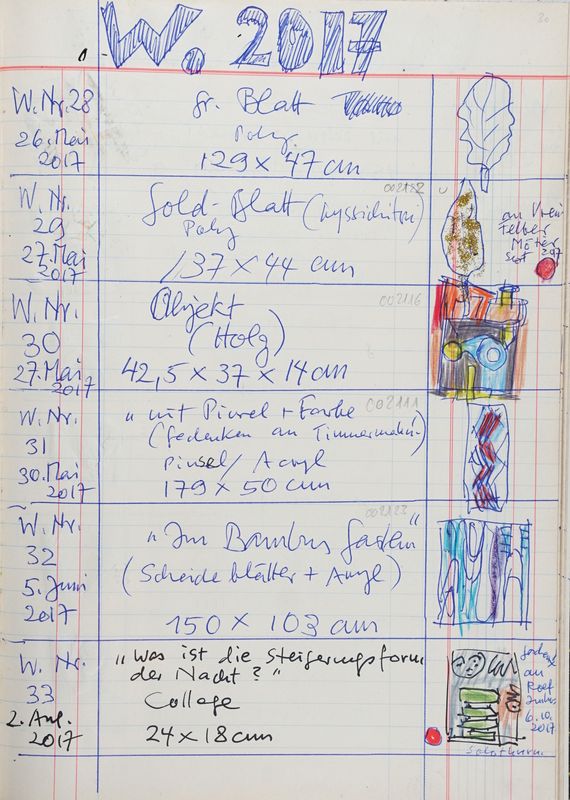 30
W. 2017
W. Nr. 28
26. Mai
2017
gr. Blatt
129 x 47 cm
W. Nr.
29
27. Mai
2017
002182
Gold-Blatt
137 x 44 cm
an
Felber
Sept 2017
W. Nr.
30
27. Mai
2017
002116
Objekt
(Holz)
42,5 x 37 x 14 cm
W. Nr.
31
30. Mai
2017
002111
„ mit Pinsel + Farbe
(Gedenken an
Pinsel / Acryl
179 x 50 cm
W. Nr.
32
5. Juni
2017
„Im Bambus Garten“
(Scheideblätter + Acryl)
150 x 103 cm
W. Nr.
33
2. Aug.
2017
„Was ist die Steigerungsform
der Nacht?“
Collage
24 x 18 cm
an
6.10.
2017